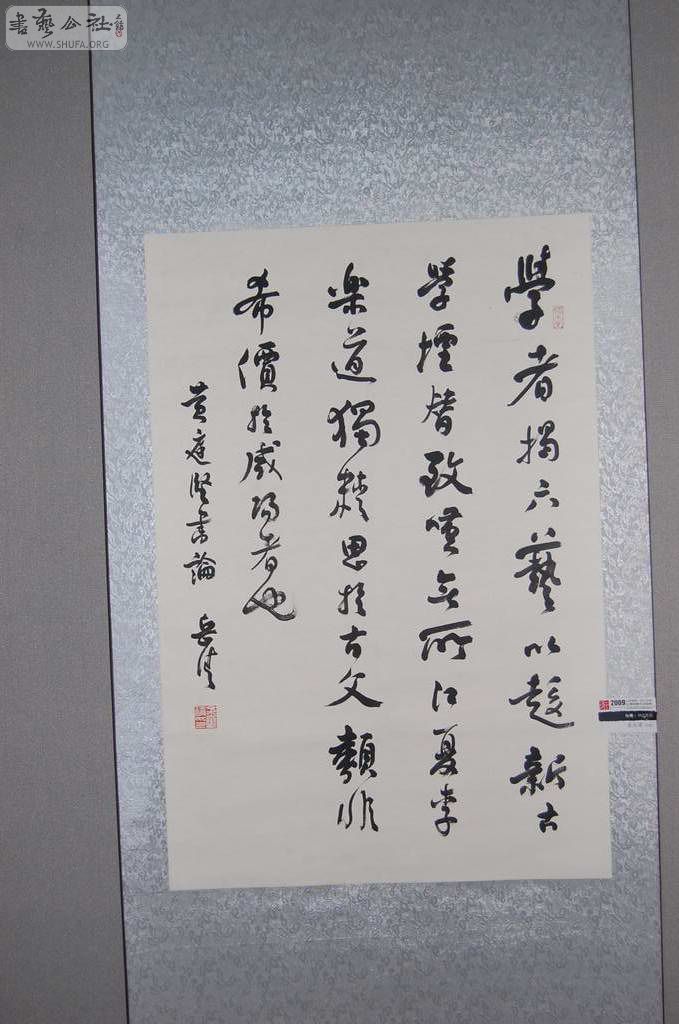 書藝公社
WWW.SHUFA.ORG
學者揭六藝以趍新古
學堙替致嘆無所江夏李
樂道獨精思於古文類非
希價於咸陽者也
黄庭堅書論 岳清
2009